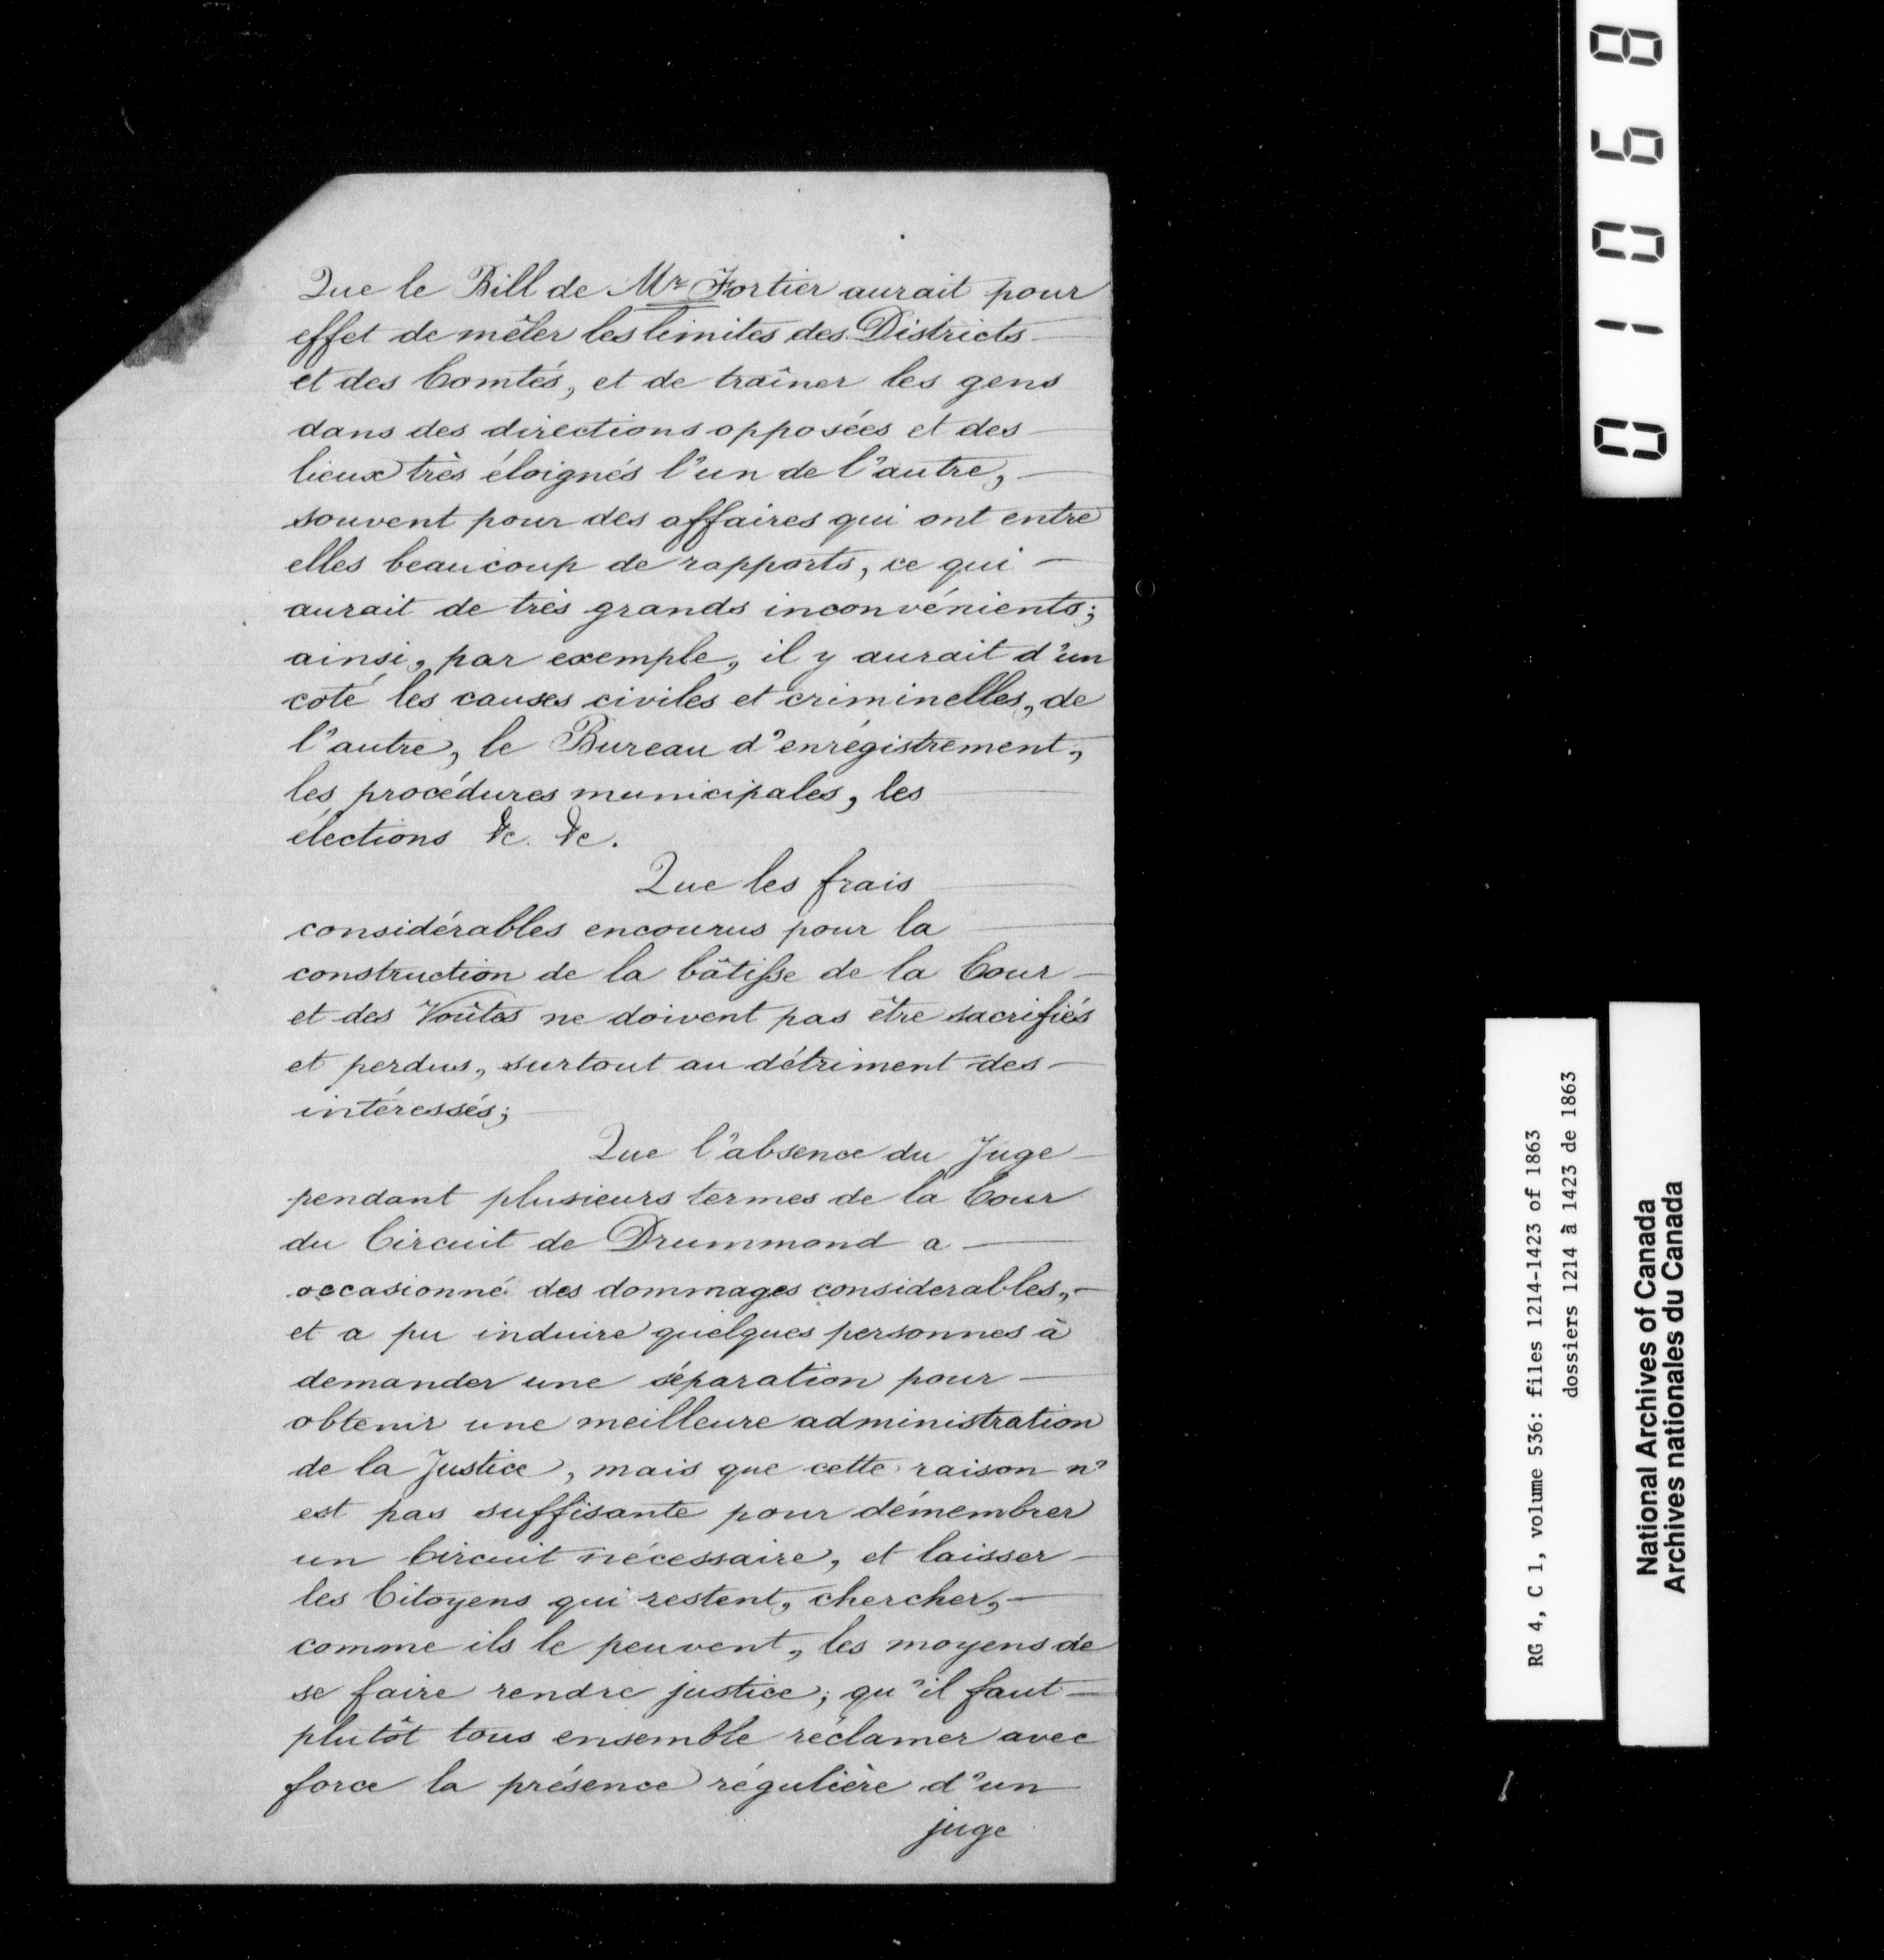 Que le Bill de Mr Fortier aurait pour
effet de mêler les limites des Districts
et des Comtés, et de traîner les gens
dans des directions opposées et des
lieux très éloignés l'un de l'autre,
souvent pour des affaires qui ont entre
elles beaucoup de rapports, ce qui
aurait de très grands inconvénients;
ainsi, par exemple, il y aurait d'un
coté les causes civiles et criminelles, de
l'autre, le Bureau d'enrégistrement,
les procédures municipales, les
élections &c. &c.
Que les frais
considérables encourus pour la
construction de la bâtisse de la Cour
et des Voûtes ne doivent pas être sacrifiés
et perdus, surtout au détriment des
intéressés;
Que l'absence du Juge
pendant plusieurs termes de la Cour
du Circuit de Drummond a
occasionné des dommages considerables,
et a pu induire quelques personnes à
demander une séparation pour
obtenir une meilleure administration
de la Justice, mais que cette raison n'
est pas suffisante pour démembrer
un Circuit nécessaire, et laisser
les Citoyens qui restent, chercher,
comme ils le peuvent, les moyens de
se faire rendre justice; qu'il faut
plutôt tous ensemble réclamer avec
force la présence régulière d'un
juge
01068
RG 4, C 1, volume 536: files 1214-1423 of 1863
dossiers 1214 à 1423 de 1863
National Archives of Canada
Archives nationales du Canada